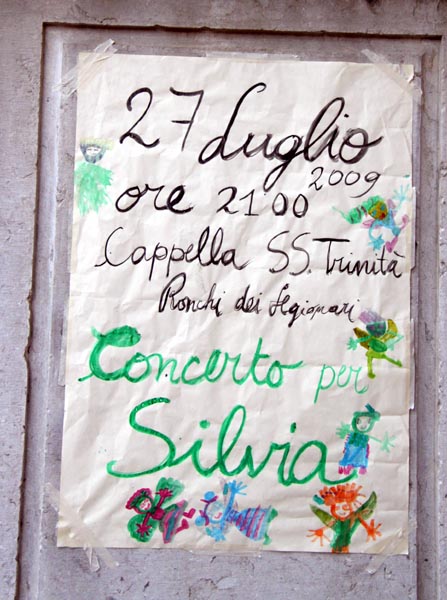 27 Luglio
2009
ore 21 00
Cappella SS. Trinità
Ronchi dei Legionari
Concerto per
Silvia